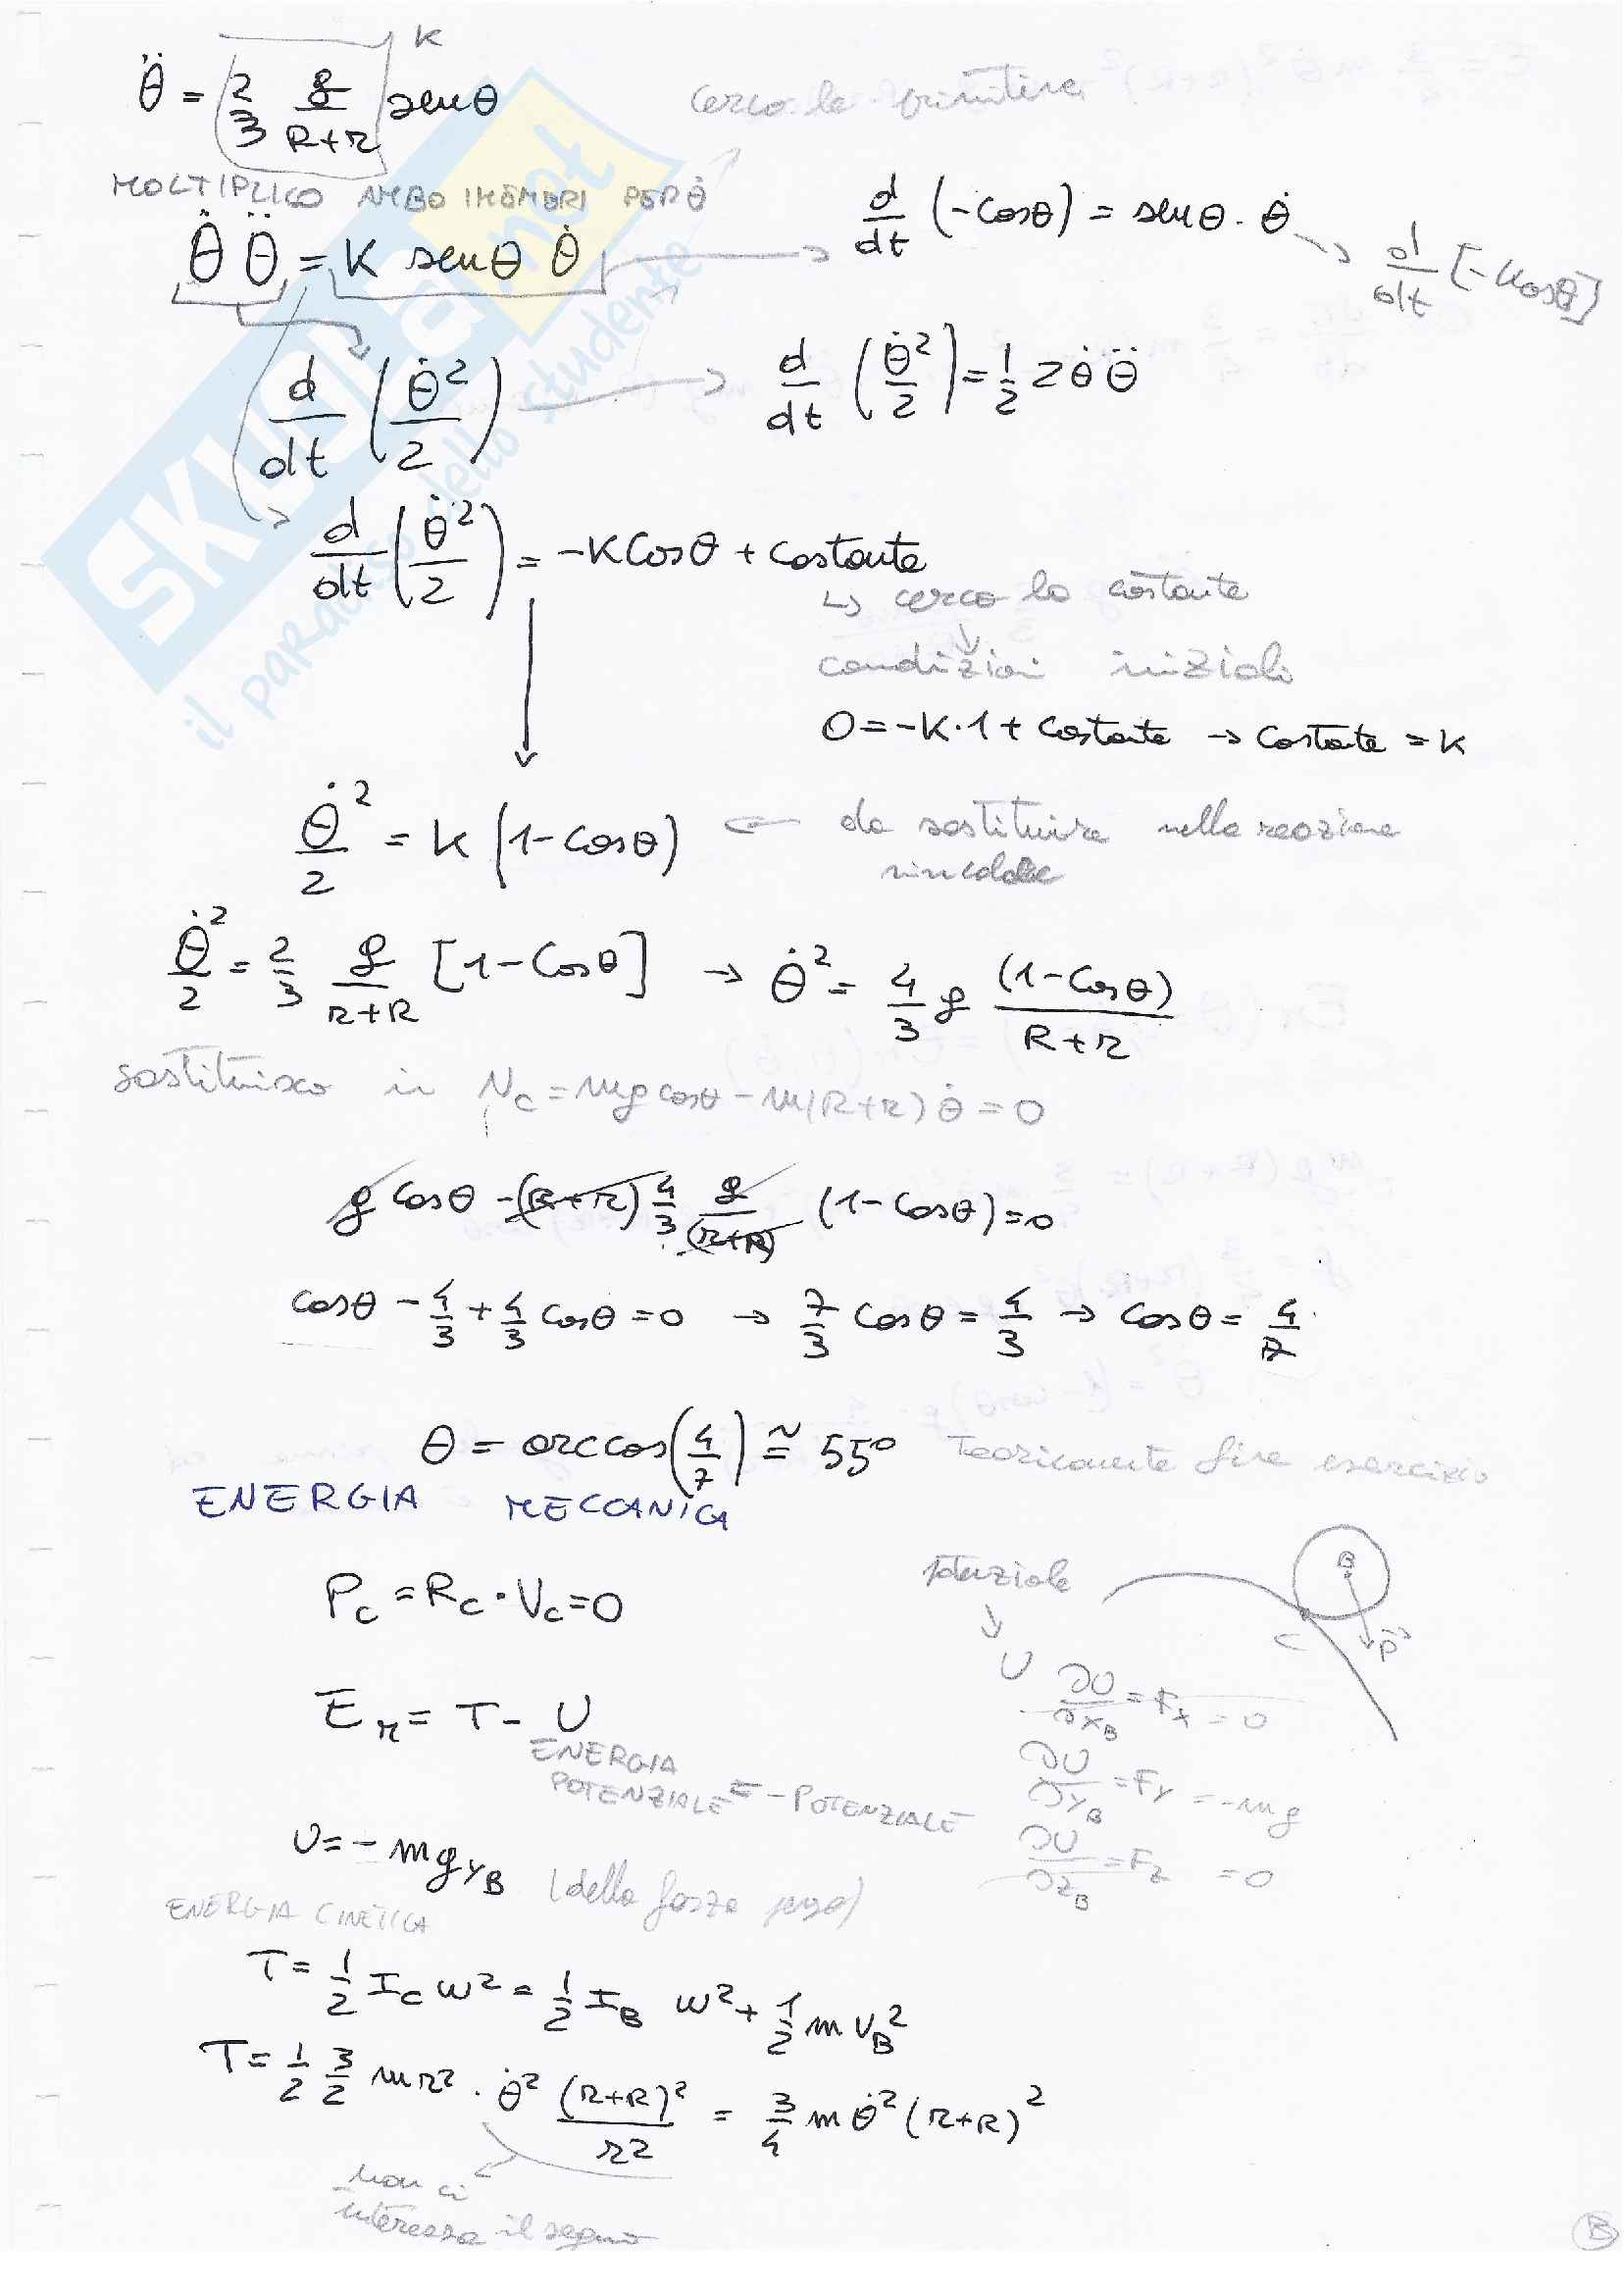 K
θ̈ = (2/3 g/(R+r)) senθ
cerco le primitive
MOLTIPLICO AMBO I MEMBRI PER θ̇
θ̇ θ̈ = K senθ θ̇
d/dt (-cosθ) = senθ · θ̇
d/dt [-Kcosθ]
d/dt (θ̇²/2)
d/dt (θ̇²/2) = 1/2 2 θ̇ θ̈
d/dt (θ̇²/2) = -K cosθ + costante
↳ cerco la costante
condizioni iniziali
0 = -K·1 + costante → costante = K
θ̇²/2 = K (1-cosθ) ← da sostituire nella reazione
vincolare
θ̇²/2 = 2/3 g/(r+R) [1-cosθ] → θ̇² = 4/3 g (1-cosθ)/(R+r)
sostituisco in N_C = mg cosθ - m(R+r) θ̇ = 0
g cosθ - (R+r) 4/3 g/(r+R) (1-cosθ) = 0
cosθ - 4/3 + 4/3 cosθ = 0 → 7/3 cosθ = 4/3 → cosθ = 4/7
θ = arccos(4/7) ≅ 55° Teoricamente fine esercizio
ENERGIA MECCANICA
P_C = R_C · V_C = 0
E_M = T - U
ENERGIA
POTENZIALE = -POTENZIALE
potenziale
↓
U
B
C
P⃗
∂U/∂x_B = F_x = 0
∂U/∂y_B = F_y = -mg
∂U/∂z_B = F_z = 0
U = - mg y_B (della forza peso)
ENERGIA CINETICA
T = 1/2 I_C ω² = 1/2 I_B ω² + 1/2 m V_B²
T = 1/2 3/2 m r² · θ̇² (r+R)²/r² = 3/4 m θ̇² (r+R)²
non ci
interessa il segno
B
SKUOLA.net
il paradiso dello studente